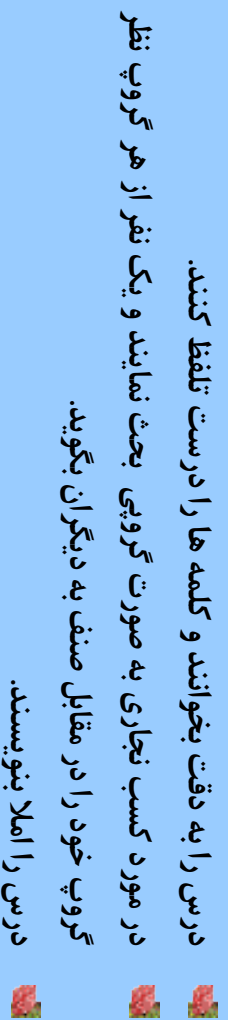 درس را به دقت بخوانند و کلمه ها را درست تلفظ کنند.
در مورد کسب نجاری به صورت گروپی بحث نمایند و یک نفر از هر گروپ نظر
گروپ خود را در مقابل صنف به دیگران بگوید.
درس را املا بنویسند.